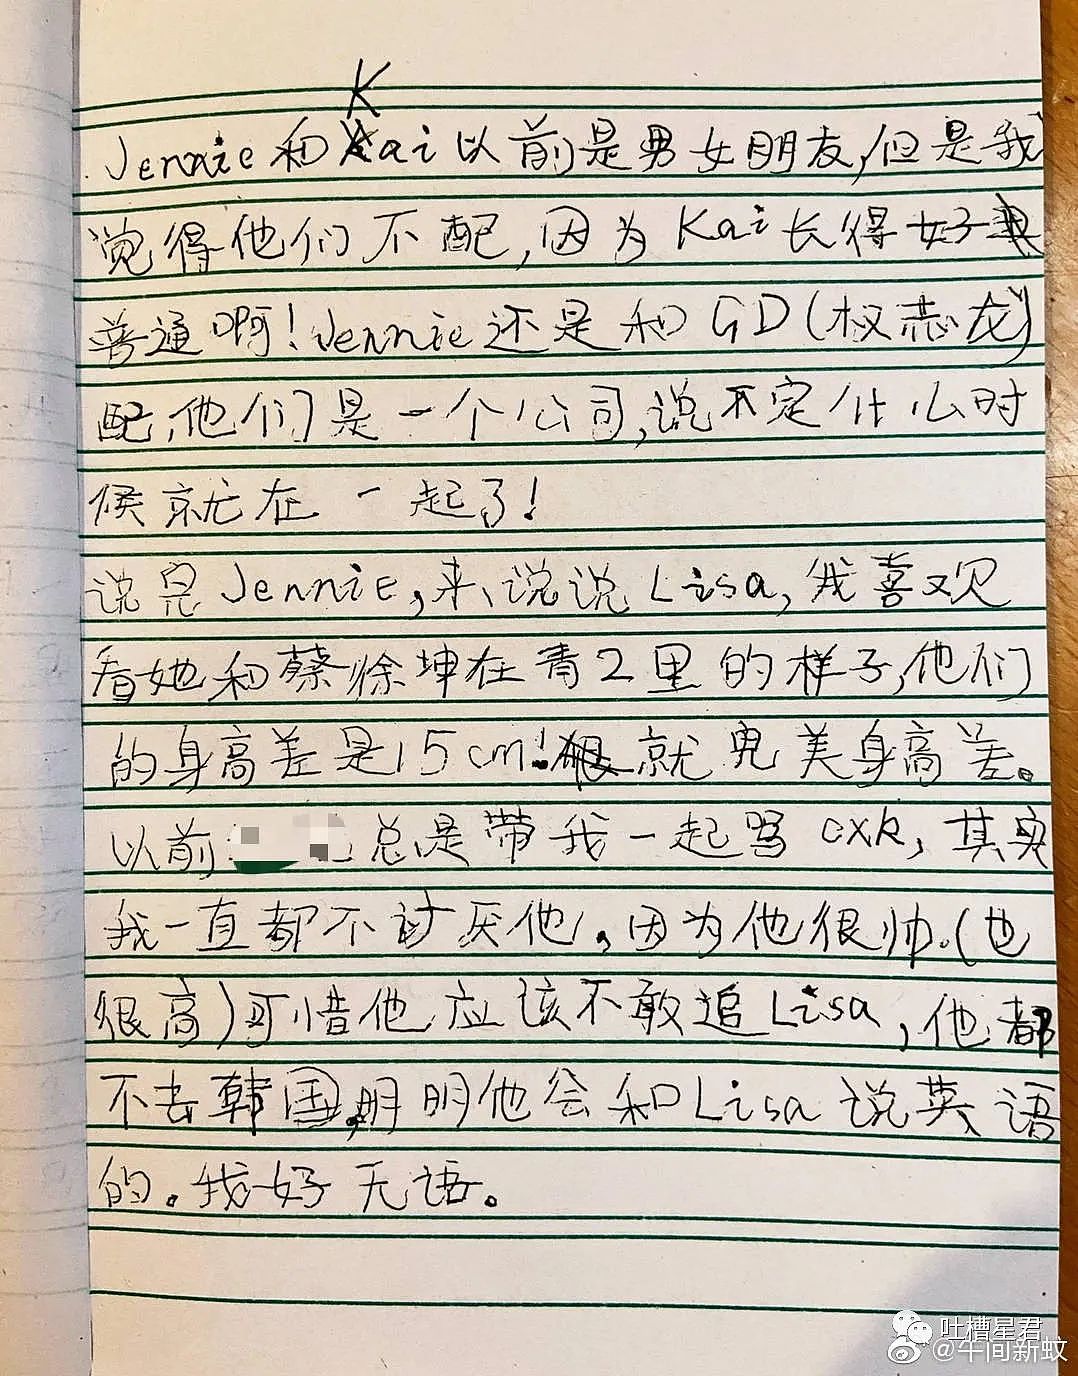 K
Jennie和Kai以前是男女朋友,但是我
觉得他们不配,因为Kai长得好
普通啊!Jennie还是和GD(权志龙)
配,他们是一个公司,说不定什么时
候就在一起了!
说完Jennie,来说说Lisa,我喜欢
看她和蔡徐坤在青2里的样子,他们
的身高差是15cm!就完美身高差。
以前 总是带我一起骂cxk,其实
我一直都不讨厌他,因为他很帅。(也
很高)可惜他应该不敢追Lisa,他都
不去韩国,明明他会和Lisa说英语
的。我好无语。
吐槽星君
@午间新蚊